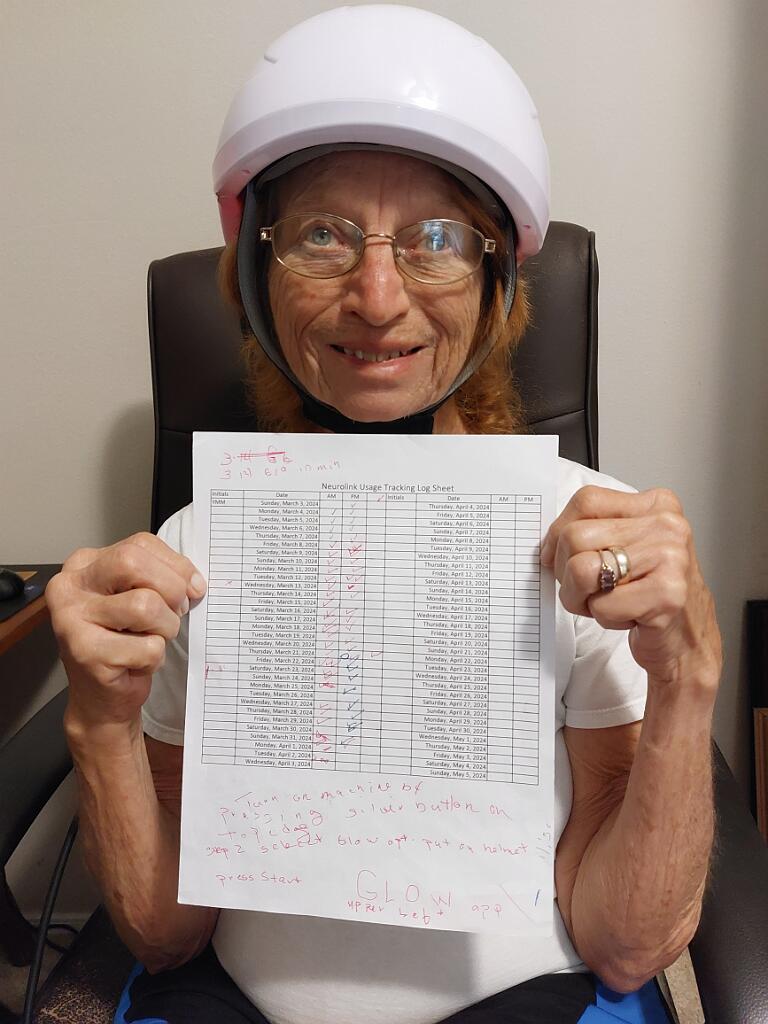 3
3 12) 610 in min
Neurolink Usage Tracking Log Sheet
Initials Date AM PM Initials Date AM PM
HMM Sunday, March 3, 2024 Thursday, April 4, 2024
Monday, March 4, 2024 Friday, April 5, 2024
Tuesday, March 5, 2024 Saturday, April 6, 2024
Wednesday, March 6, 2024 Sunday, April 7, 2024
Thursday, March 7, 2024 Monday, April 8, 2024
Friday, March 8, 2024 Tuesday, April 9, 2024
Saturday, March 9, 2024 Wednesday, April 10, 2024
Sunday, March 10, 2024 Thursday, April 11, 2024
Monday, March 11, 2024 Friday, April 12, 2024
Tuesday, March 12, 2024 Saturday, April 13, 2024
Wednesday, March 13, 2024 Sunday, April 14, 2024
Thursday, March 14, 2024 Monday, April 15, 2024
Friday, March 15, 2024 Tuesday, April 16, 2024
Saturday, March 16, 2024 Wednesday, April 17, 2024
Sunday, March 17, 2024 Thursday, April 18, 2024
Monday, March 18, 2024 Friday, April 19, 2024
Tuesday, March 19, 2024 Saturday, April 20, 2024
Wednesday, March 20, 2024 Sunday, April 21, 2024
Thursday, March 21, 2024 Monday, April 22, 2024
Friday, March 22, 2024 Tuesday, April 23, 2024
Saturday, March 23, 2024 Wednesday, April 24, 2024
Sunday, March 24, 2024 Thursday, April 25, 2024
Monday, March 25, 2024 Friday, April 26, 2024
Tuesday, March 26, 2024 Saturday, April 27, 2024
Wednesday, March 27, 2024 Sunday, April 28, 2024
Thursday, March 28, 2024 Monday, April 29, 2024
Friday, March 29, 2024 Tuesday, April 30, 2024
Saturday, March 30, 2024 Wednesday, May 1, 2024
Sunday, March 31, 2024 Thursday, May 2, 2024
Monday, April 1, 2024 Friday, May 3, 2024
Tuesday, April 2, 2024 Saturday, May 4, 2024
Wednesday, April 3, 2024 Sunday, May 5, 2024
Turn on machine by
pressing silver button on
top
step 2 select Glow opt. put on helmet
press Start
GLOW
upper left app